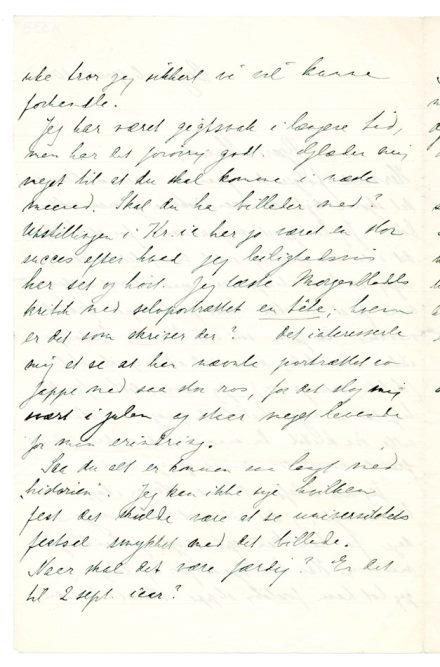 uke tror jeg sikkert vi vil kunne
forhandle.
Jeg har været gigtsvak i længere tid,
men har det forøvrig godt. Glæder mig
meget til at du skal komme i næste
maaned. Skal du ha billeder med?
Utstillingen i Kr.ia har jo været en stor
succes efter hvad jeg leilighedsvis
har set og hørt. Jeg læste Morgenbladets
kritik med selvportrættet en tête, hvem
er det som skriver der? Det interesserte
mig at se at han nævnte portrættet av
Jappe med saa stor ros, for det slog mig
svært i julen og staar meget levende
for min erindring.
Saa du alt er kommen saa langt med
"historien". Jeg kan ikke si hvilken
fest det skulde være at se universitetets
festsal smykket med det billede.
Naar skal det være færdig? Er det
til 2 sept. iaar?